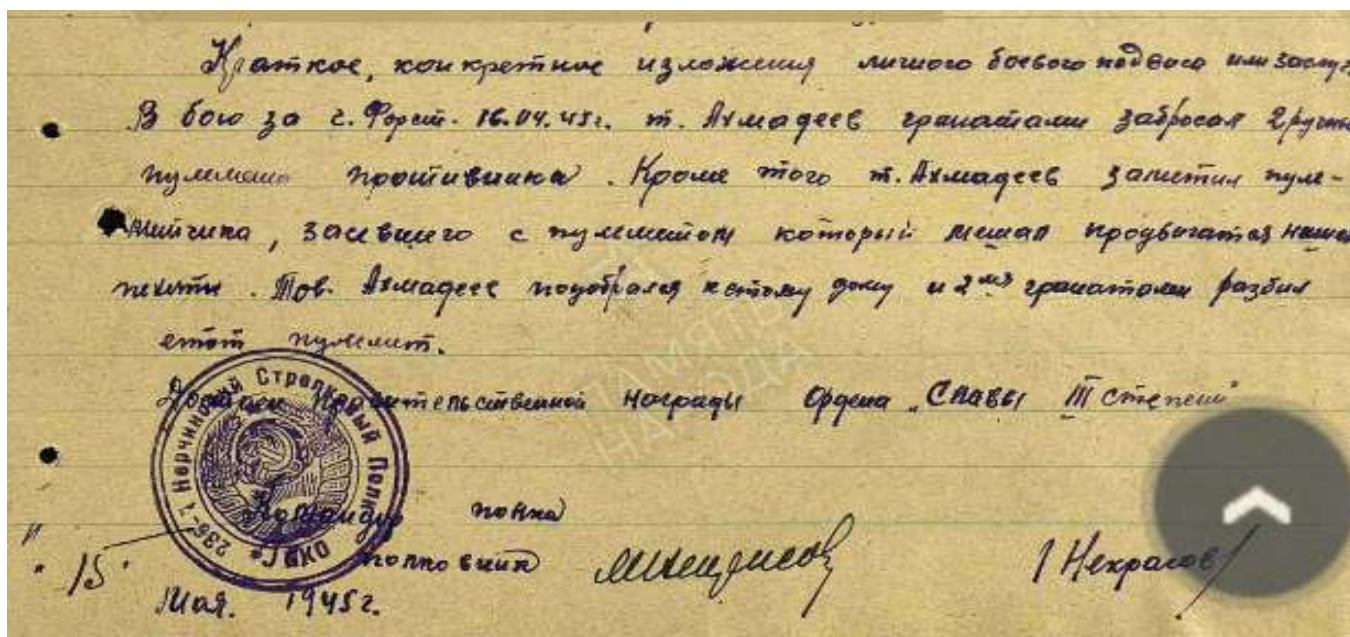 Краткое, конкретное изложения личного боевого подвига или заслуг
В бою за г. Форст. 16.04.45г. т. Ахмадеев гранатами забросал 2 ручны
пулемета противника. Кроме того т. Ахмадеев заметил пуле-
метчика, засевшего с пулеметом который мешал продвигатся нашей
пехоты. Тов. Ахмадеев подобрался к етому дому и 2мя гранатами разбил
етот пулемет.
Достоин Правительственной награды Ордена "Славы III степени"
236-й Нерчинский Стрелковый Полк
ПАМЯТЬ
НАРОДА
Командир полка
полковник
/Некрасов/
"15"
Мая. 1945г.